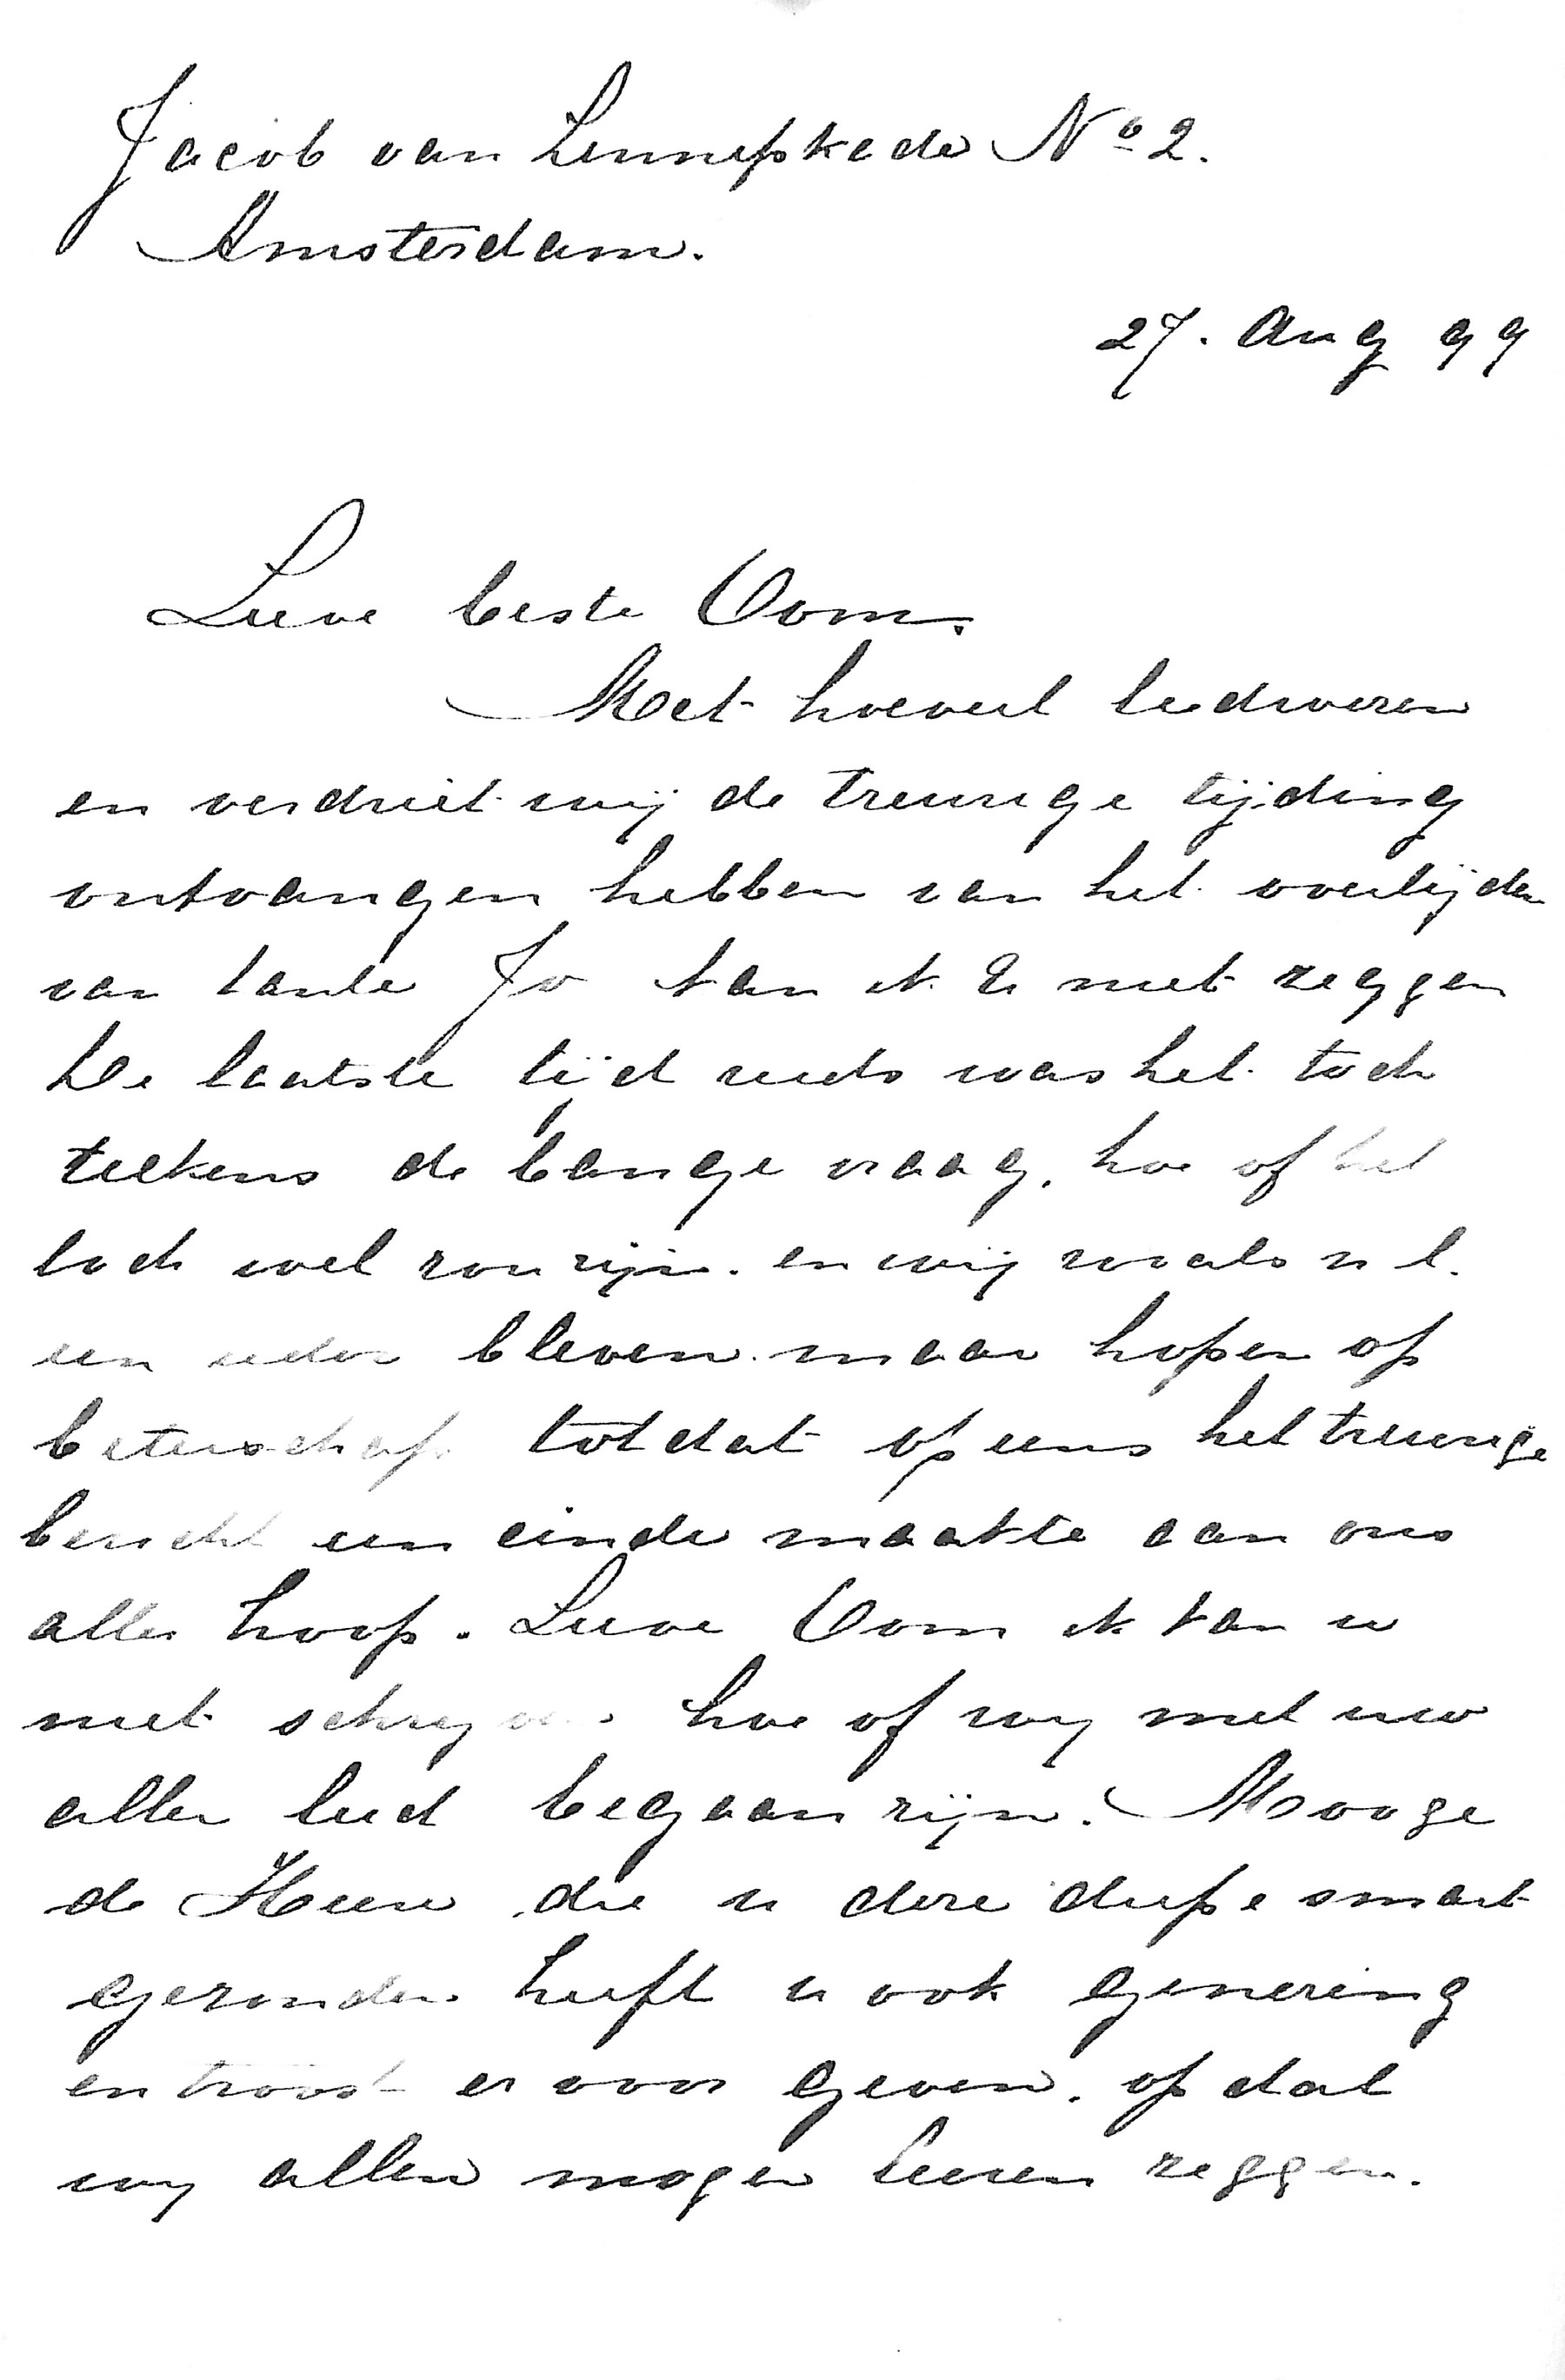 Jacob van Lennepkade No 2.
Amsterdam.
27. Aug 99
Lieve beste Oom.
Met hoeveel leedwezen
en verdriet wij de treurige tijding
ontvangen hebben van het overlijden
van tante Jo kan ik U niet zeggen
De laatste tijd reeds was het toch
telkens de bange vraag, hoe of het
toch wel zou zijn. en wij zooals u l.
een ieder bleven maar hopen op
beterschap totdat op eens het treurige
bericht een einde maakte aan ons
aller hoop. Lieve Oom ik kan u
niet schrijven hoe of wij met uw
aller leed begaan zijn. Mooge
de Heere die u deze diepe smart
gezonden heeft u ook genezing
en troost er voor geven. op dat
wij allen mogen leeren zeggen.